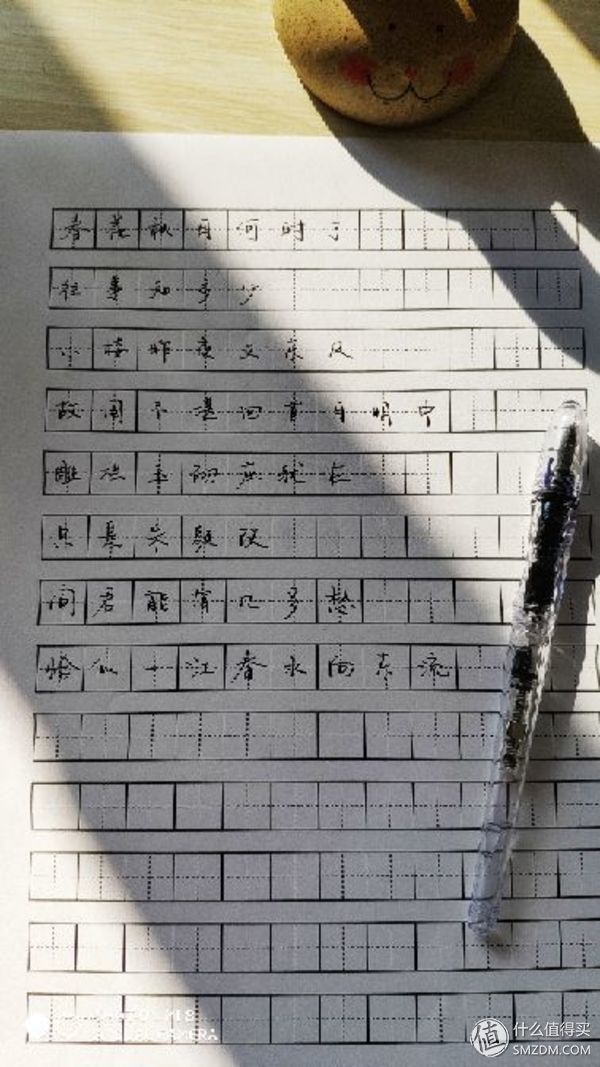 春花秋月何时了
往事知多少
小楼昨夜又东风
故国不堪回首月明中
雕栏玉砌应犹在
只是朱颜改
问君能有几多愁
恰似一江春水向东流
CAMERA
值 什么值得买
SMZDM.COM